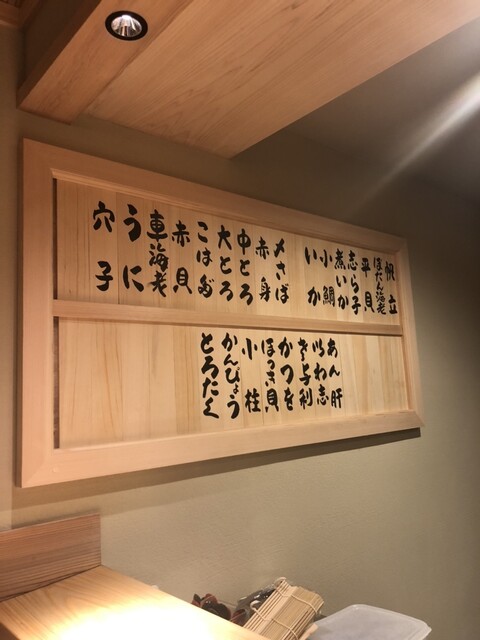 帆立
ぼたん海老
平貝
志ら子
煮いか
小鯛
いか
〆さば
赤身
中とろ
大とろ
こはだ
赤貝
車海老
うに
穴子
あん肝
いわ志
さよ利
かつを
ほっき貝
小柱
かんぴょう
とろたく